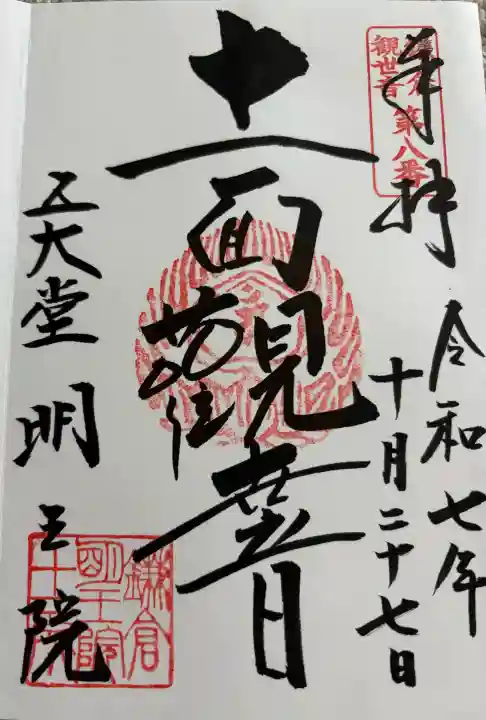 奉拝
鎌倉
観世音
第八番
令和七年
十月二十七日
十一面観世音
五大堂
明王院
鎌倉
明王院